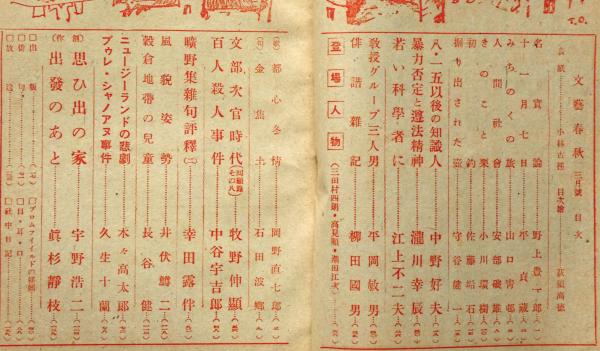 文藝春秋 三月號 目次
表紙 小林古徑 目次繪 荻須高德
名實論 野上豊一郎
十一月七日 平貞藏
みちのくの族 山口靑邨
人間社會 安部磯雄
きのこと栗 小川環樹
初釣 佐藤垢石
掘り出された壺 守谷健一
八・一五以後の知識人 中野好夫
暴力否定と遵法精神 瀧川幸辰
若い科學者に 江上不二夫
教授グループ三人男 平岡敏男
俳諧雜記 柳田國男
登場人物 (三田村四郎・高見順・潮田江次)
(歌) 都心冬情 岡野直七郎
(句) 金焦土 石田波鄕
文部次官時代 (囘顧錄その八) 牧野伸顯
百人殺人事件 中谷宇吉郎
曠野集雜句評釋(二) 幸田露伴
風貌姿勢 井伏鱒二
穀倉地帶の兒童 長谷健
ニュージーランドの悲劇 木々高太郎
ブゥレ・シャノアヌ事件 久生十蘭
(創作) 思ひ出の家 宇野浩二
出發のあと 眞杉靜枝
□出版
□俳句
□放送
□ブロムフイイルドの
□目・耳・口
□社中日記
T.O.